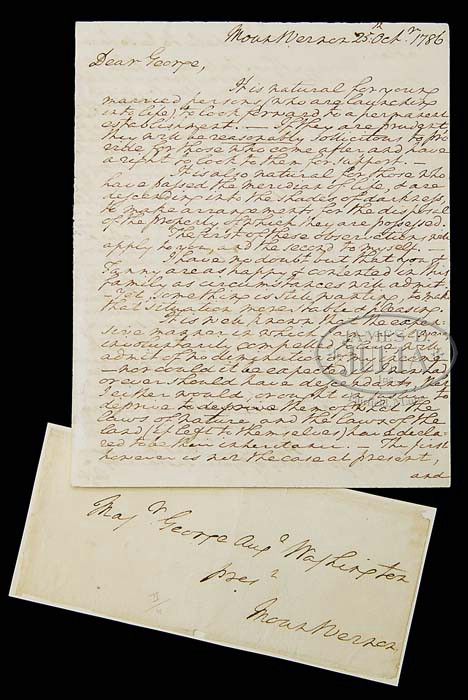 Mount Vernon 25th Octr 1786
Dear George,
It is natural for young
married persons (who are launching
into life) to look forward to a permanent
establishment. — If they are prudent
they will be reasonably solicitous to pro
vide for those who come after and have
a right to look to them for support. —
It is also natural for those who
have passed the meridian of life, & are
descending into the shades of darkness,
to make arrangements for the disposal
of the property of which they are possessed.
The first of these observations will
apply to you, and the second to myself.
I have no doubt but that you &
Fanny are as happy & contented in this
family as circumstances will admit.
— Yet, something is still wanting, to make
that situation more stable & pleasing.
It is well known that the expen-
sive manner in which I am
involuntarily compelled to live will
admit of no diminution of my
— nor could it be expected if I now had
or ever should have descendants, that
I either would, or ought to
deprive to deprive them of what the
Laws of nature, and the Laws of the
land (if left to themselves) have decla
red to be their inheritance. The first
however is not the case at present,
and
JAMES D.
JULIA
Majr George Augt Washington
presnt
Mount Vernon